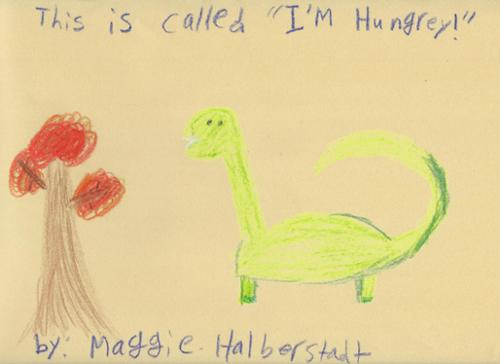 This is called "I'M Hungrey!"
by: Maggie Halberstadt